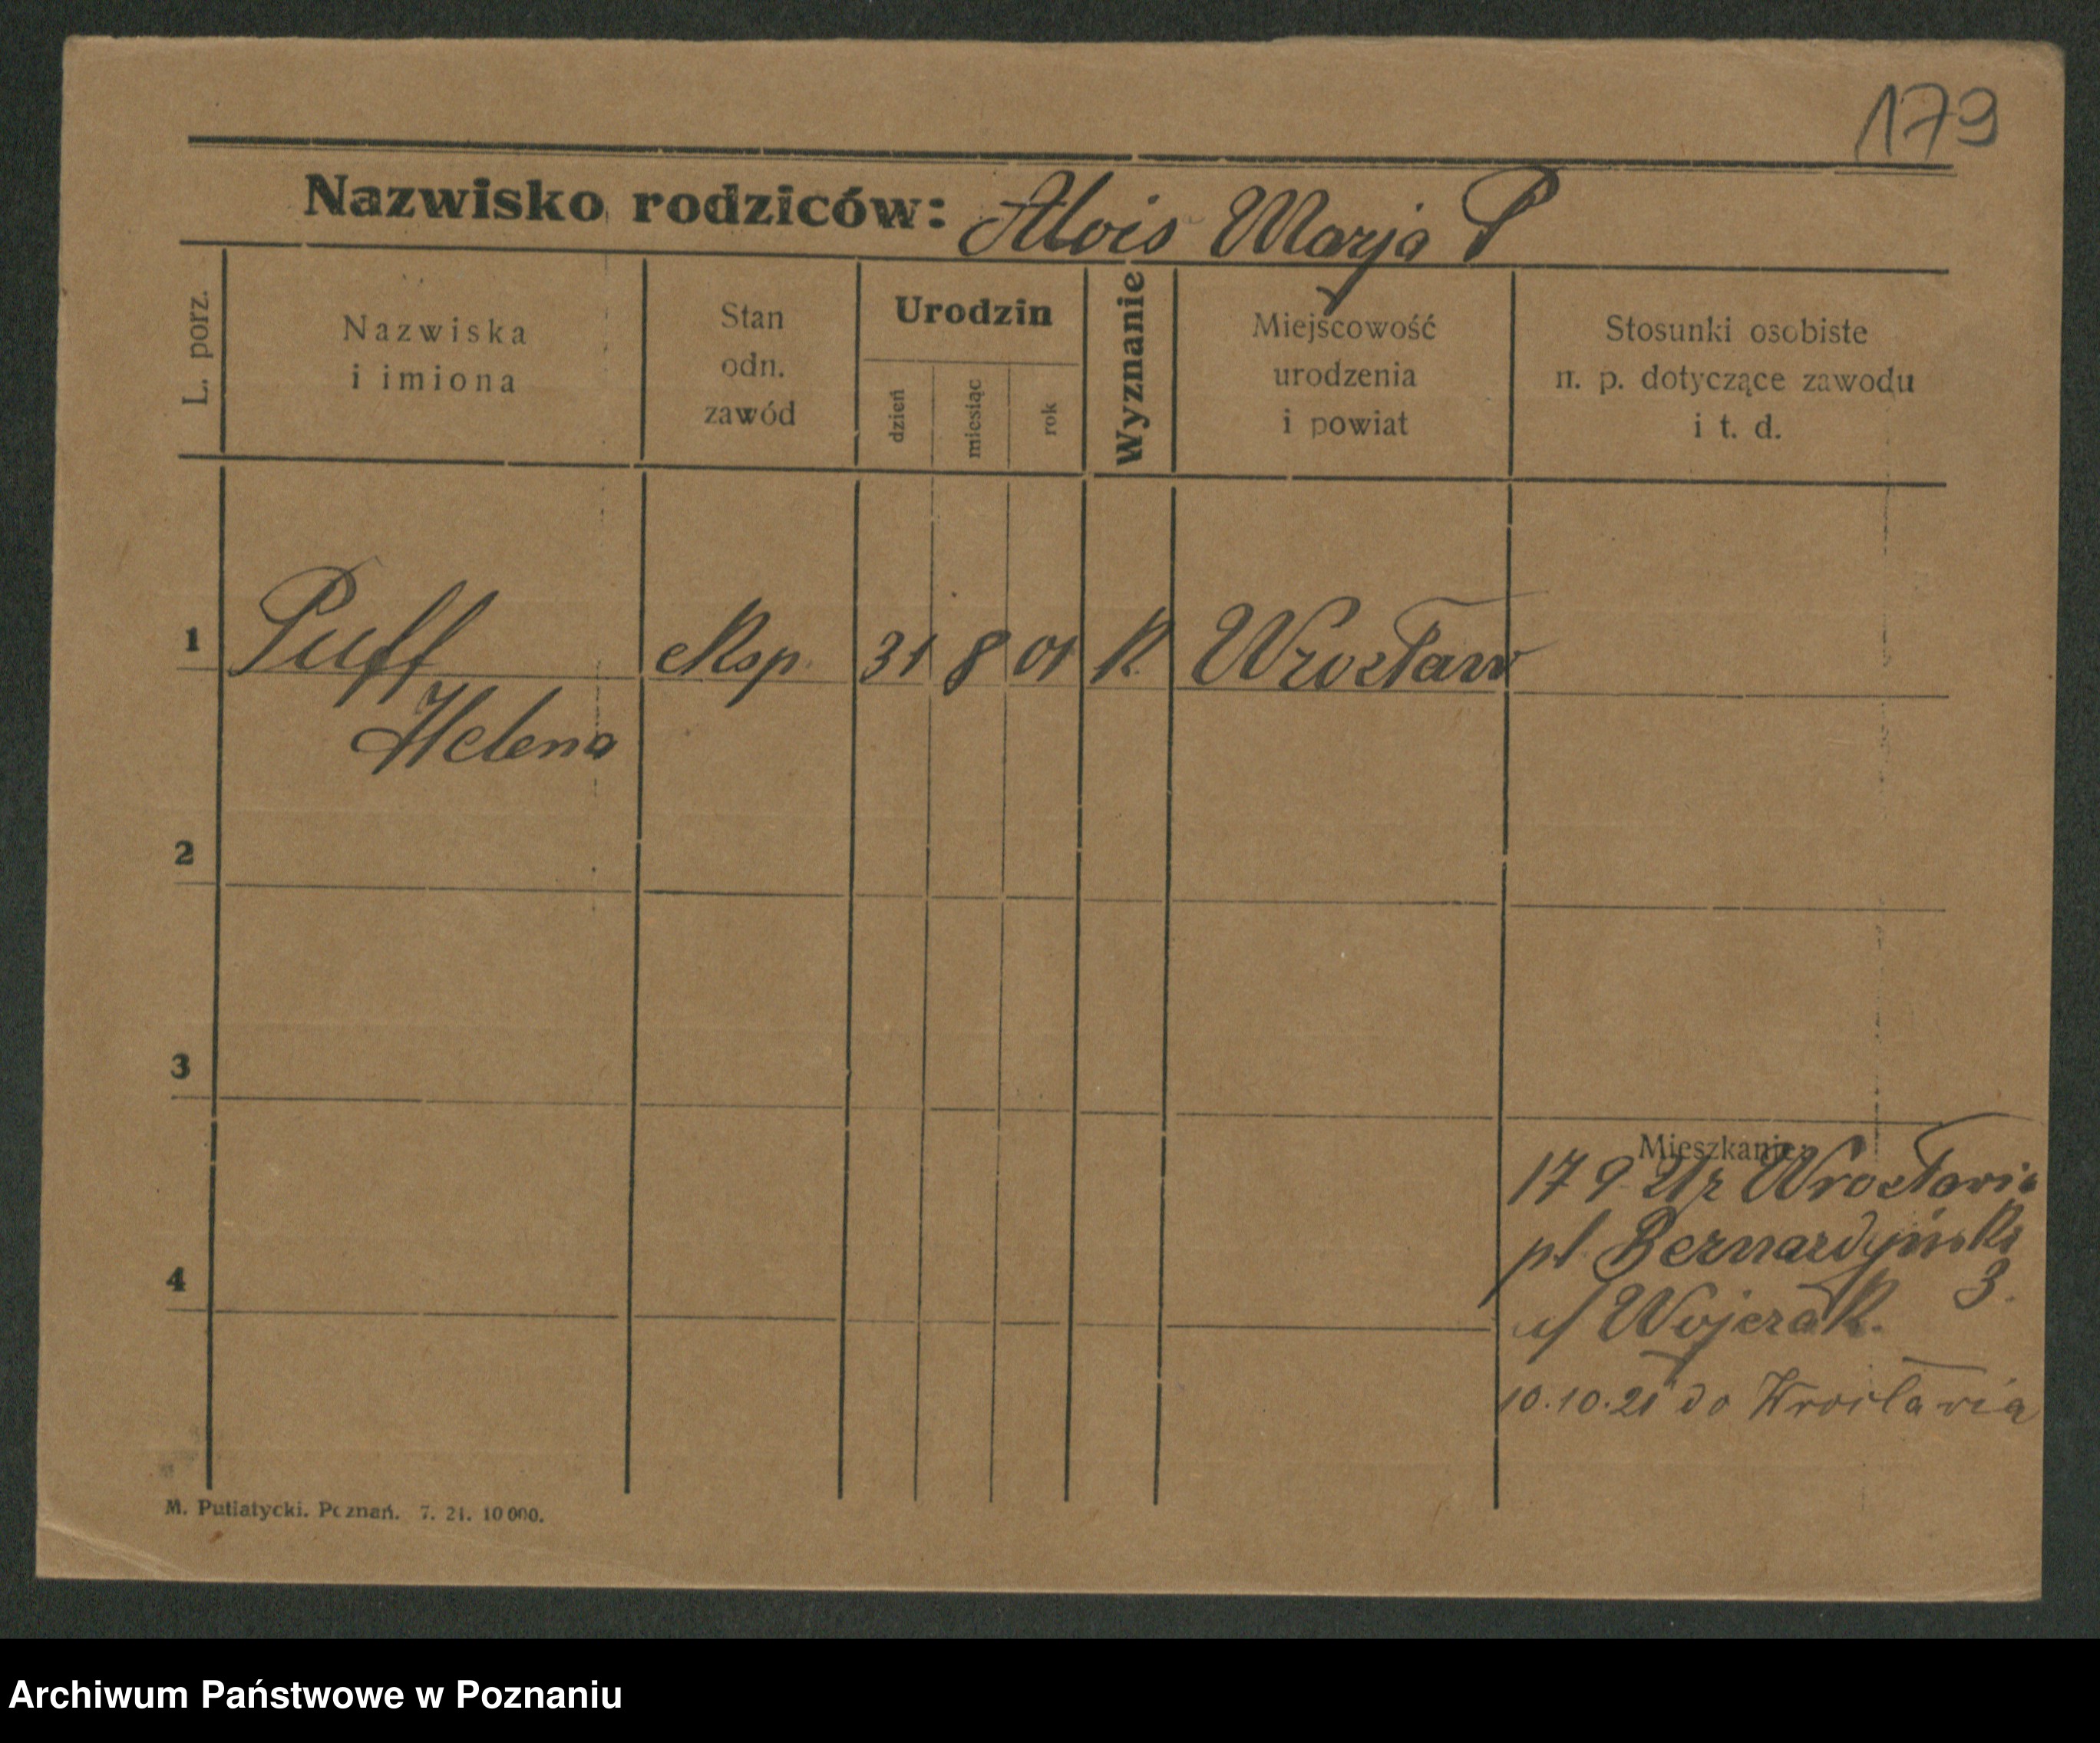 179
Nazwisko rodziców: Alois Marja P
L. porz.
Nazwiska
i imiona
Stan
odn.
zawód
Urodzin
dzień
miesiąc
rok
Wyznanie
Miejscowość
urodzenia
i powiat
Stosunki osobiste
n. p. dotyczące zawodu
i t. d.
1 Puff eksp. 31 8 01 k Wrocław
Helena
2
3
4
Mieszkanie:
17 9 21 z Wrocławia
pl Bernardyński
3.
u/ Wojczak.
10.10.21 do Wrocławia
M. Putiatycki. Poznań. 7. 21. 10 000.
Archiwum Państwowe w Poznaniu